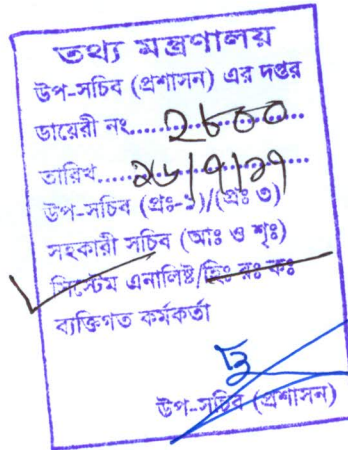 তথ্য মন্ত্রণালয়
উপ-সচিব (প্রশাসন) এর দপ্তর
ডায়েরী নং.....২৮০০
তারিখ.....২৬/৭/১৭
উপ-সচিব (প্রঃ-১)/(প্রঃ ৩)
সহকারী সচিব (আঃ ও শৃঃ)
সিস্টেম এনালিষ্ট/হিঃ রঃ কঃ
ব্যক্তিগত কর্মকর্তা
উপ-সচিব (প্রশাসন)